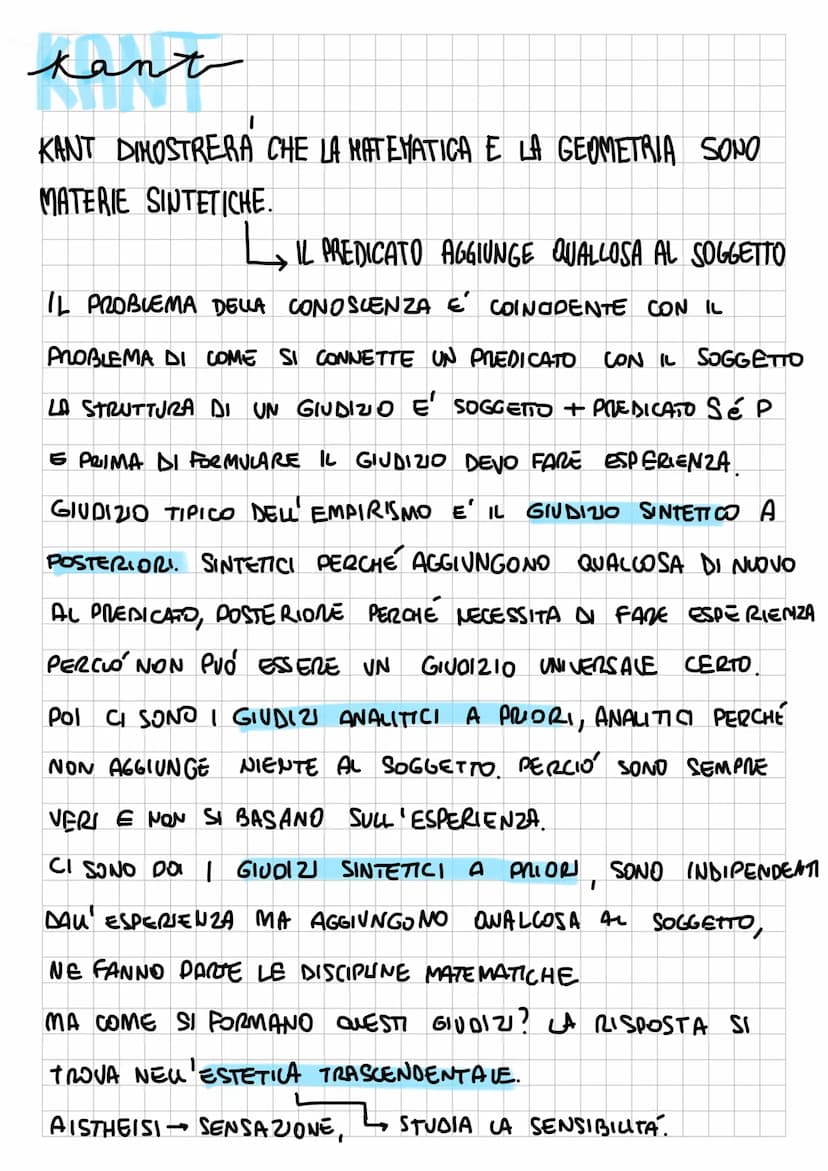 KANT
kant
KANT DIMOSTRERÁ CHE LA MATEMATICA E LA GEOMETRIA SONO
MATERIE SINTETICHE.
↳ IL PREDICATO AGGIUNGE QUALCOSA AL SOGGETTO
IL PROBLEMA DELLA CONOSCENZA E' COINCIDENTE CON IL
PROBLEMA DI COME SI CONNETTE UN PREDICATO CON IL SOGGETTO
LA STRUTTURA DI UN GIUDIZIO E' SOGGETTO + PREDICATO S é P
E PRIMA DI FORMULARE IL GIUDIZIO DEVO FARE ESPERIENZA.
GIUDIZIO TIPICO DELL'EMPIRISMO E' IL GIUDIZIO SINTETICO A
POSTERIORI. SINTETICI PERCHÉ AGGIUNGONO QUALCOSA DI NUOVO
AL PREDICATO, POSTERIORE PERCHÉ NECESSITA DI FARE ESPERIENZA
PERCIÓ NON PUÓ ESSERE UN GIUDIZIO UNIVERSALE CERTO.
POI CI SONO I GIUDIZI ANALITICI A PRIORI, ANALITICI PERCHÉ
NON AGGIUNGE NIENTE AL SOGGETTO. PERCIÓ SONO SEMPRE
VERI E NON SI BASANO SULL'ESPERIENZA.
CI SONO POI I GIUDIZI SINTETICI A PRIORI, SONO INDIPENDENTI
DALL'ESPERIENZA MA AGGIUNGONO QUALCOSA AL SOGGETTO,
NE FANNO PARTE LE DISCIPLINE MATEMATICHE
MA COME SI FORMANO QUESTI GIUDIZI? LA RISPOSTA SI
TROVA NELL'ESTETICA TRASCENDENTALE.
AISTHEISI → SENSAZIONE, ↳ STUDIA LA SENSIBILITÁ.